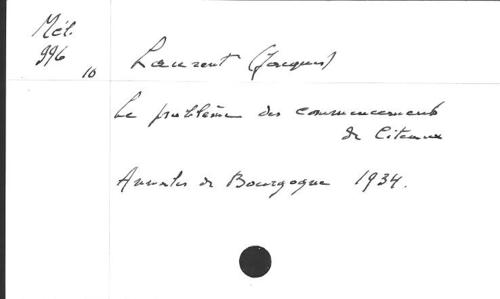 Mél.
996
10
Laurent (Jacques)
Le problème des commencements
de Citeaux
Annales de Bourgogne 1934.